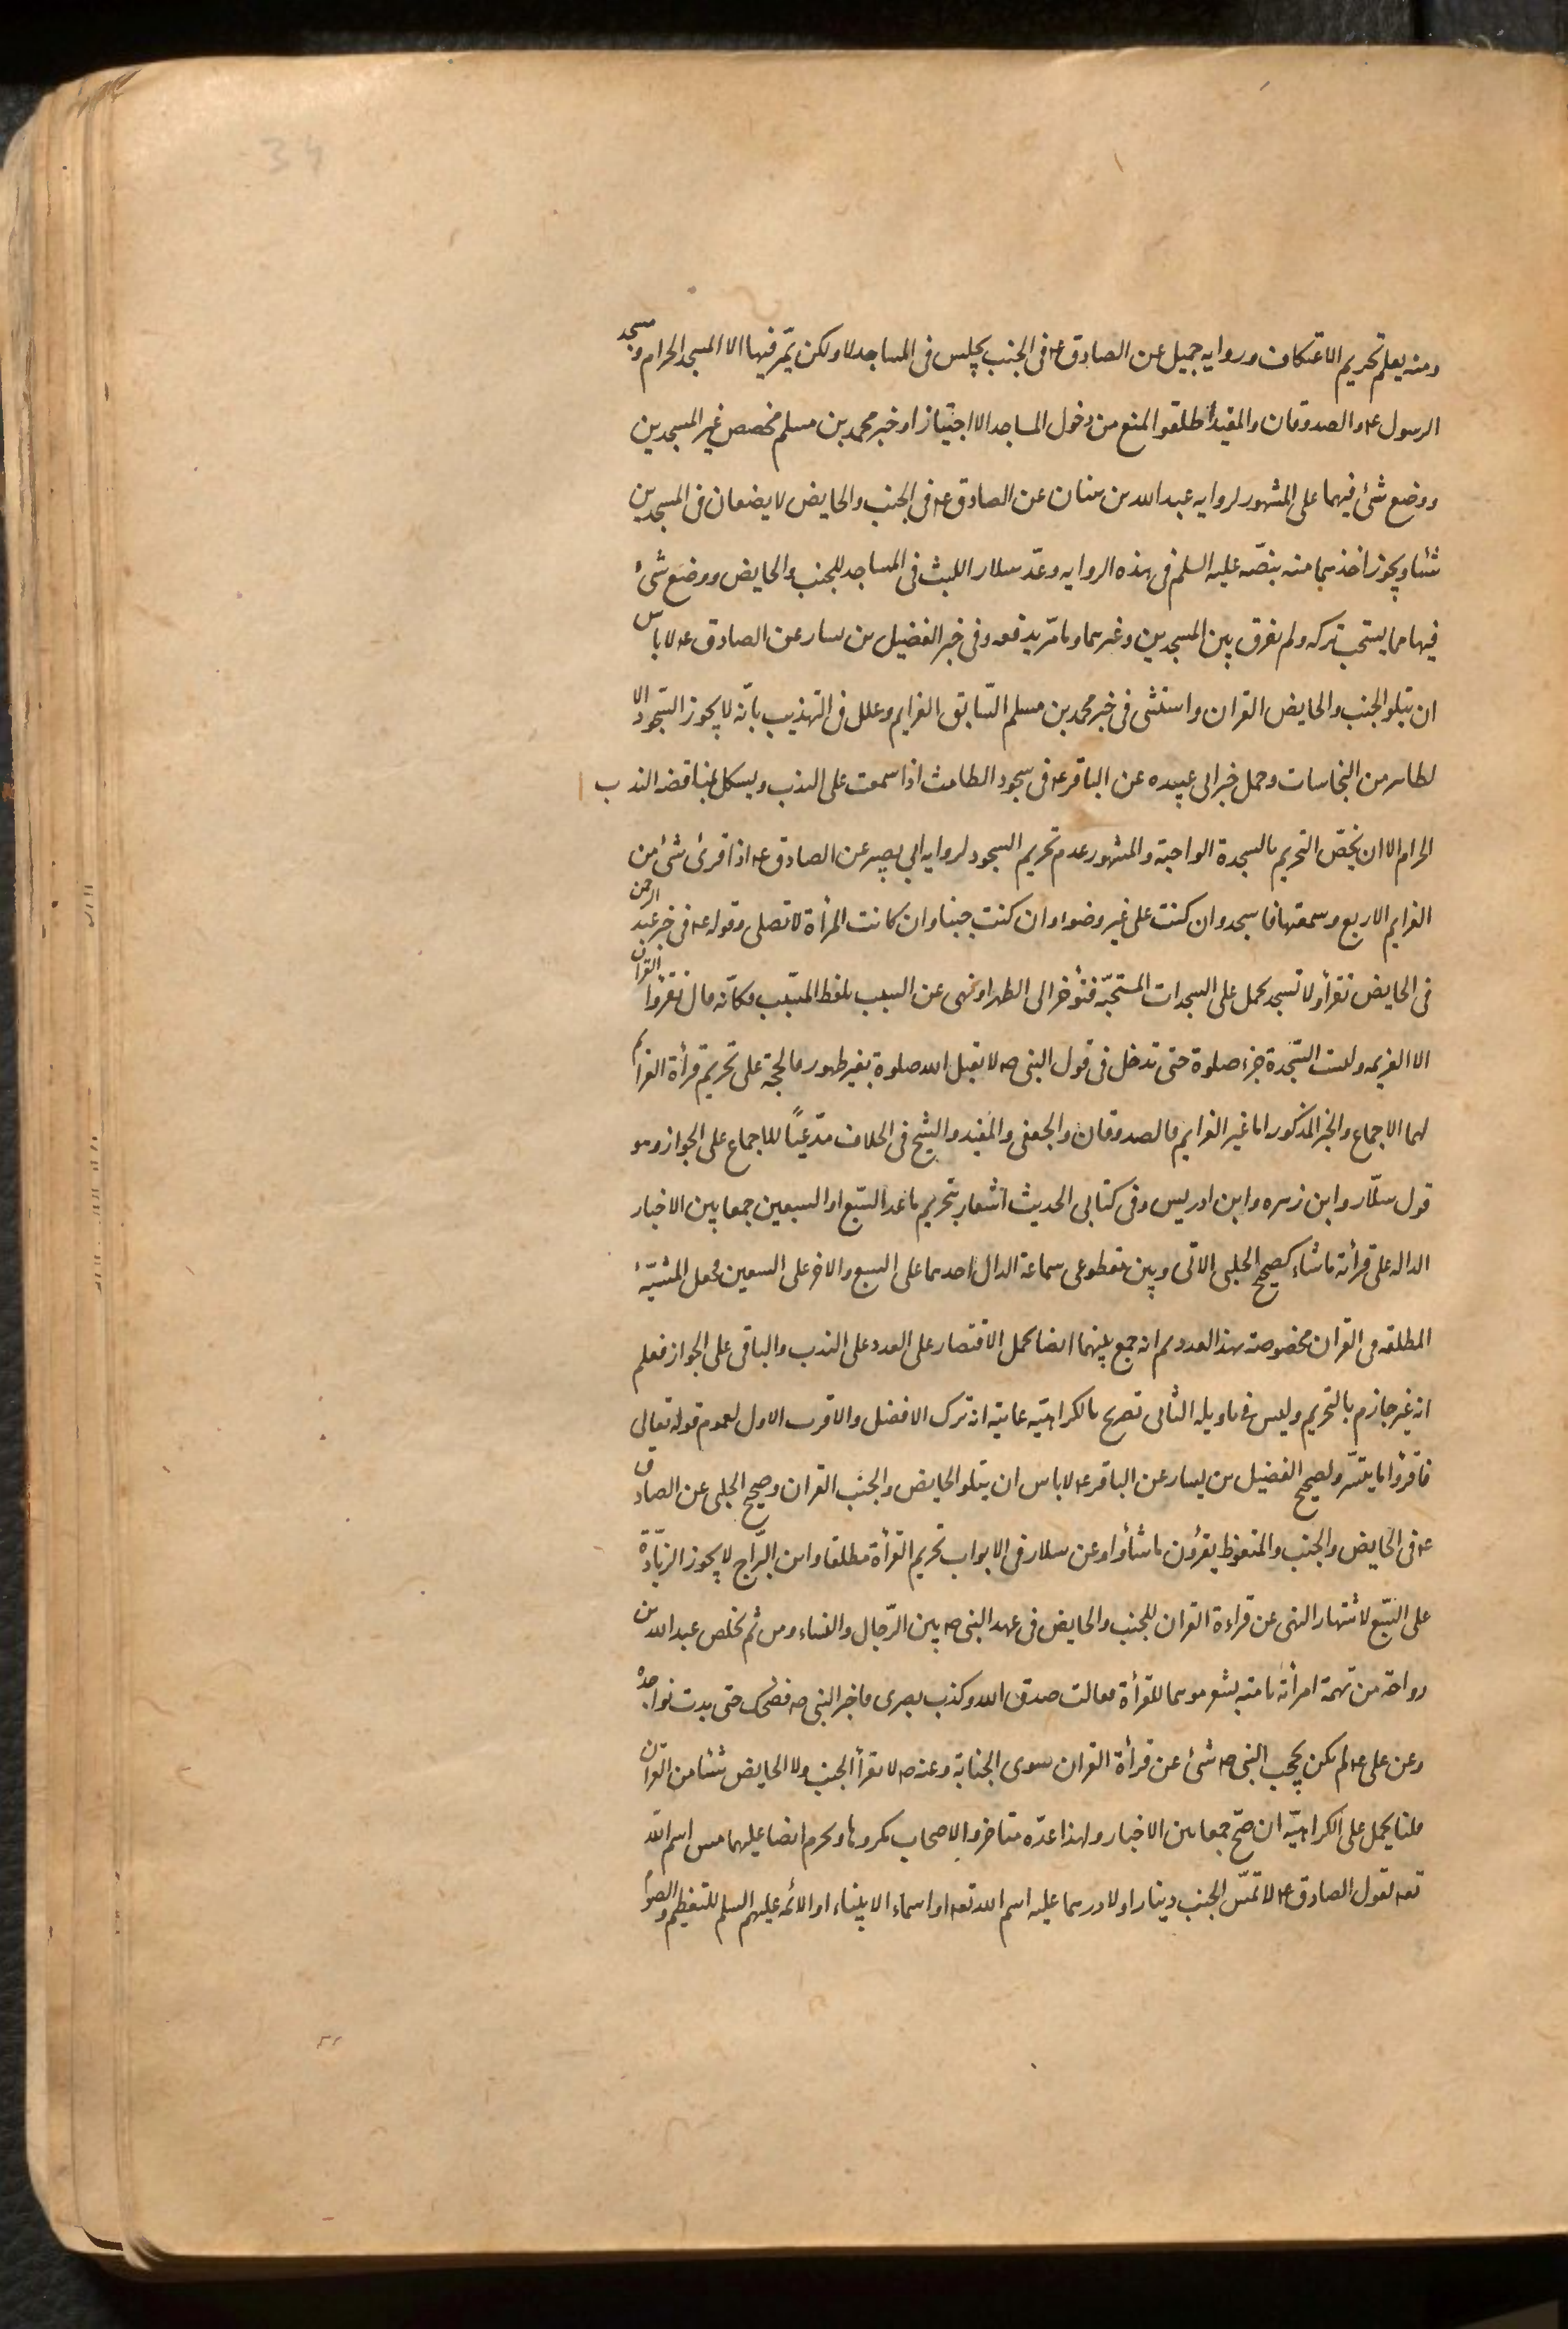 ومنه يعلم تحريم الاعتكاف ورواية جميل عن الصادق ع في الجنب يجلس في المساجد لا ولكن يمرّ فيها الا المسجد الحرام ومسجد
الرسول ع والصدوقان والمفيد اطلقوا المنع من دخول المساجد الا اجتيازا وخبر محمد بن مسلم مخصص غير المسجدين
ووضع شئ فيهما على المشهور لرواية عبد الله بن سنان عن الصادق ع في الجنب والحايض لا يضعان في المسجدين
شئا ويجوز اخذهما منه بنصّه عليه السلم في هذه الروايه وعدّ سلار اللبث في المساجد للجنب والحايض ووضع شئ
فيها مما يستحب تركه ولم يفرق بين المسجدين وغيرهما وما مرّ يدفعه وفي خبر الفضيل بن يسار عن الصادق ع لا باس
ان يتلو الجنب والحايض القران واستثنى في خبر محمد بن مسلم السّابق العزايم وعلل في التهذيب بانّه لا يجوز السّجود الا
لطاهر من النجاسات وحمل خبر ابي عبيده عن الباقر ع في سجود الطامث اذا سمعت على الندب ويشكل بمناقضه الندب
الحرام الا ان يخصّ التحريم بالسجدة الواجبة والمشهور عدم تحريم السجود لرواية ابي بصير عن الصادق ع اذا قرئ شئ من
العزايم الاربع وسمعتها فاسجد وان كنت على غير وضوء وان كنت جنبا وان كانت المرأة لا تصلي وقوله ع في خبر عبد الرحمن
في الحايض تقرأ ولا تسجد يحمل على السجدات المستحبّة فتؤخر الى الطهر او نهى عن السبب بلفظ المسبّب فكانّه قال لا تقروا القران
الا العزيمه وليست السّجدة جزء صلوة حتى تدخل في قول النبي ص لا يقبل الله صلوة بغير طهور فالحجة على تحريم قرأة العزايم
لهما الاجماع والخبر المذكور اما غير العزايم فالصدوقان والجعفي والمفيد والشيخ في الخلاف مدّعيًا للاجماع على الجواز وهو
قول سلّار وابن زهره وابن ادريس وفي كتابي الحديث اشعار بتحريم ما عدا السّبع او السبعين جمعا بين الاخبار
الداله على قرأة ما شاء كصحيح الحلبي الاتي وبين مقطوعي سماعة الدال احدهما على السبع والاخر على السبعين فجعل المشيّة
المطلقه في القران مخصوصة بهذا العدد ثم انه جمع بينهما ايضا بحمل الاقتصار على العدد على الندب والباقي على الجواز فعلم
انه غير جازم بالتحريم وليس في تاويله الثاني تصريح بالكراهيّة غايته انه ترك الافضل والاقرب الاول لعموم قوله تعالى
فاقرؤا ما تيسّر ولصحيح الفضيل بن يسار عن الباقر ع لا باس ان يتلو الحايض والجنب القران وصحيح الحلبي عن الصادق
ع في الحايض والجنب والمتغوط يقرؤن ما شاؤا وعن سلار في الابواب تحريم القرأة مطلقا وابن البرّاج لا يجوز الزيادّة
على السّبع لاشتهار النهي عن قراءة القران للجنب والحايض في عهد النبي ص بين الرّجال والنساء ومن ثم تخلص عبد الله بن
رواحة من تهمة امرأته بامته بشعر موهما للقرأة فقالت صدق الله وكذب بصري فاخبر النبي ص فضحك حتى بدت نواجذه
وعن علي ع لم يكن يحجب النبي ص شئ عن قرأة القران سوى الجنابة وعنه ص لا يقرأ الجنب ولا الحايض شئا من القران
قلنا يحمل على الكراهيّة ان صحّ جمعا بين الاخبار ولهذا عدّه متاخروا الاصحاب مكروها ويحرم ايضا عليهما مس اسم اللّه
تعه لقول الصادق ع لا تمسّ الجنب دينارا ولا درهما عليه اسم الله تعه او اسماء الانبياء او الائمه عليهم السلم للتعظيم والصواب